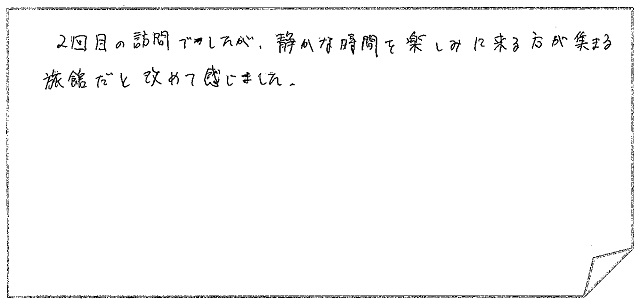 2回目の訪問でしたが、静かな時間を楽しみに来る方が集まる
旅館だと改めて感じました。